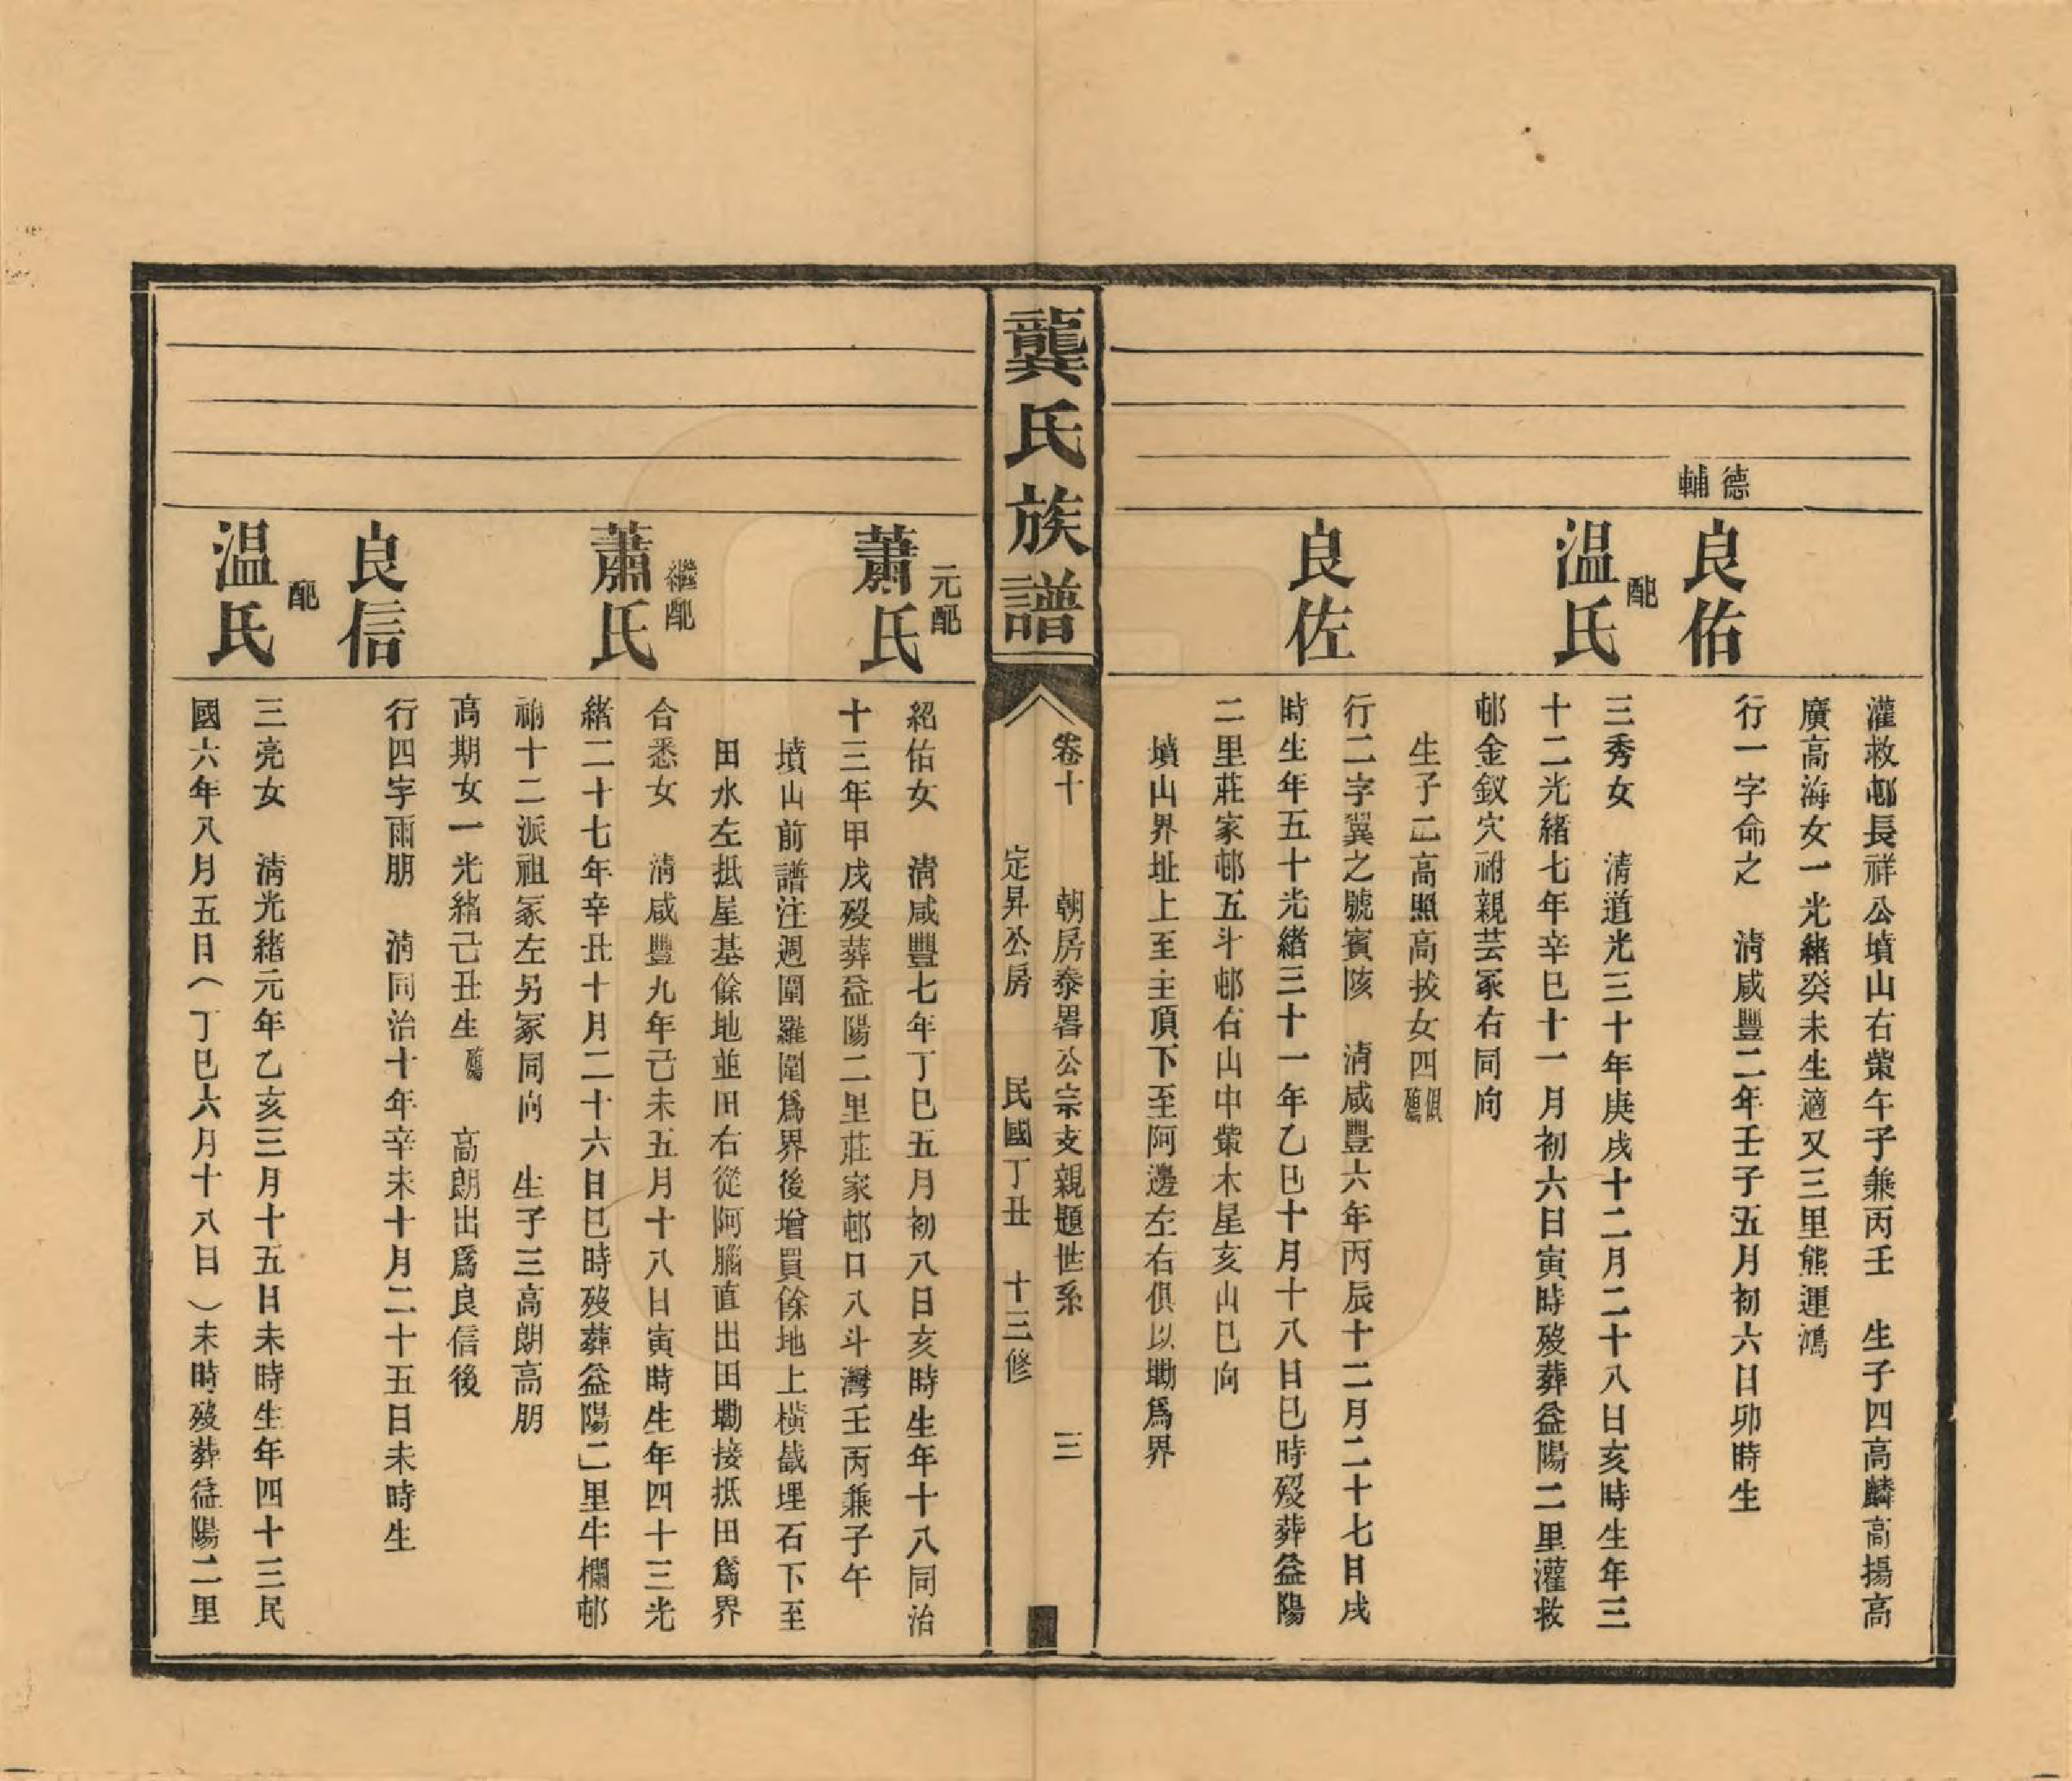 灌救邨長祥公墳山右塋午子兼丙壬　生子四高麟高揚高
廣高海女一光緒癸未生適又三里熊運鴻
德輔
良佑
行一字命之　清咸豐二年壬子五月初六日卯時生
配
温氏
三秀女　清道光三十年庚戌十二月二十八日亥時生年三
十二光緒七年辛巳十一月初六日寅時歿葬益陽二里灌救
邨金釵穴祔親芸冢右同向
生子二高照高拔女四俱殤
良佐
行二字翼之號賓陔　清咸豐六年丙辰十二月二十七日戌
時生年五十光緒三十一年乙巳十月十八日巳時歿葬益陽
二里莊家邨五斗邨右山中塋木星亥山巳向
墳山界址上至主頂下至阿邊左右俱以墈爲界
龔氏族譜
卷十　朝房泰畧公宗支親題世系　三
定昇公房　民國丁丑　十三修
元配
蕭氏
紹佑女　清咸豐七年丁巳五月初八日亥時生年十八同治
十三年甲戌歿葬益陽二里莊家邨口八斗灣壬丙兼子午
墳山前譜注週圍羅圍爲界後增買餘地上橫截埋石下至
田水左抵屋基餘地並田右從阿腦直出田墈接抵田爲界
繼配
蕭氏
合悉女　清咸豐九年己未五月十八日寅時生年四十三光
緒二十七年辛丑十月二十六日巳時歿葬益陽二里牛欄邨
祔十二派祖冢左另冢同向　生子三高朗高朋
高期女一光緒己丑生殤　高朗出爲良信後
良信
行四字雨朋　清同治十年辛未十月二十五日未時生
配
温氏
三亮女　清光緒元年乙亥三月十五日未時生年四十三民
國六年八月五日（丁巳六月十八日）未時歿葬益陽二里